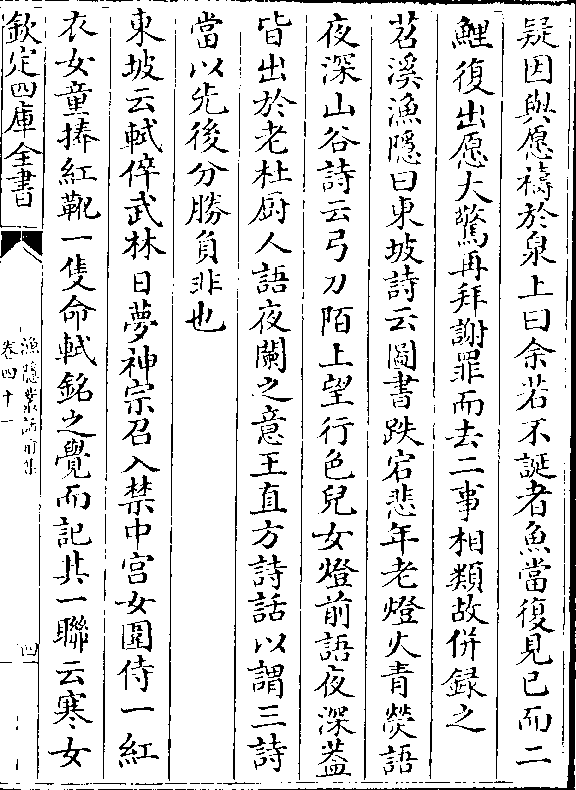 疑因與愿禱於泉上曰余若不誕者魚當復見已而二
鯉復出愿大驚再拜謝罪而去二事相類故併録之
苕溪漁隱曰東坡詩云圖書跌宕悲年老燈火青熒語
夜深山谷詩云弓刀陌上望行色兒女燈前語夜深蓋
皆出於老杜厨人語夜闌之意王直方詩話以謂三詩
當以先後分勝負非也
東坡云軾倅武林日夢神宗召入禁中宮女圍侍一紅
衣女童捧紅靴一隻命軾銘之覺而記其一聯云寒女
欽定四庫全書
漁隱叢話前集
卷四十一
四